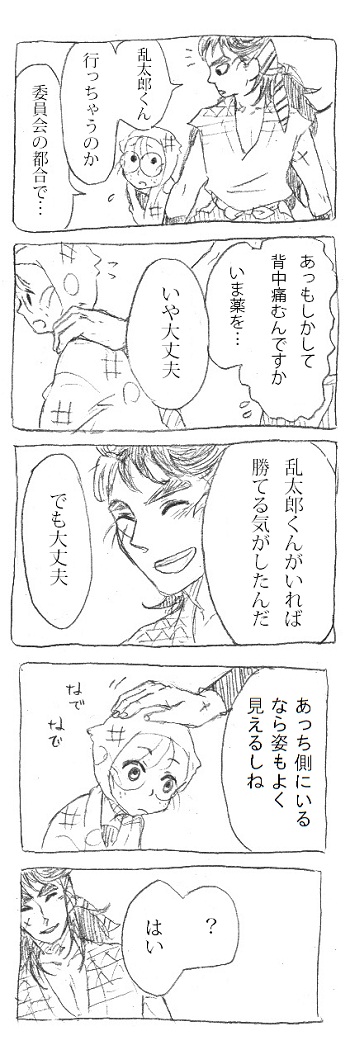 乱太郎くん
行っちゃうのか
委員会の都合で…
あっもしかして
背中痛むんですか
いま薬を…
いや大丈夫
乱太郎くんがいれば
勝てる気がしたんだ
でも大丈夫
あっち側にいる
なら姿もよく
見えるしね
なで
なで
?
はい